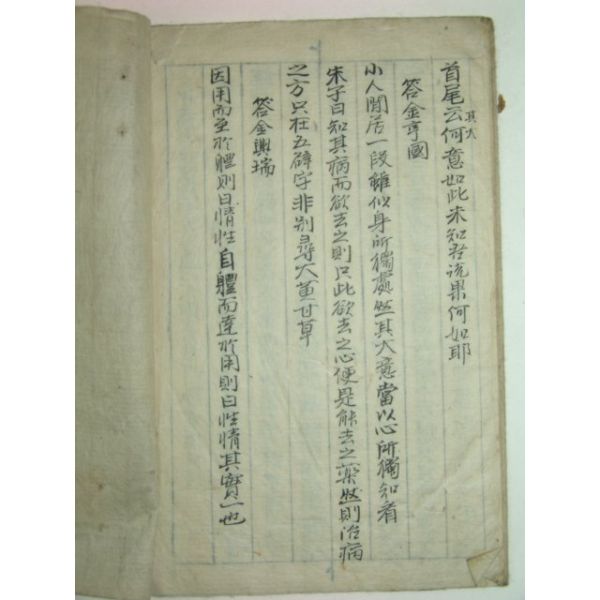 首尾云其大何意如此未知君説果何如耶
答金亨國
小人閒居一段雖似身所獨處然其大意當以心所獨知看
朱子曰知其病而欲去之則只此欲去之心便是能去之藥然則治病
之方只在五辟字非别尋大黄甘草
答金興瑞
因用而至於體則曰情性自體而達於用則曰性情其實一也